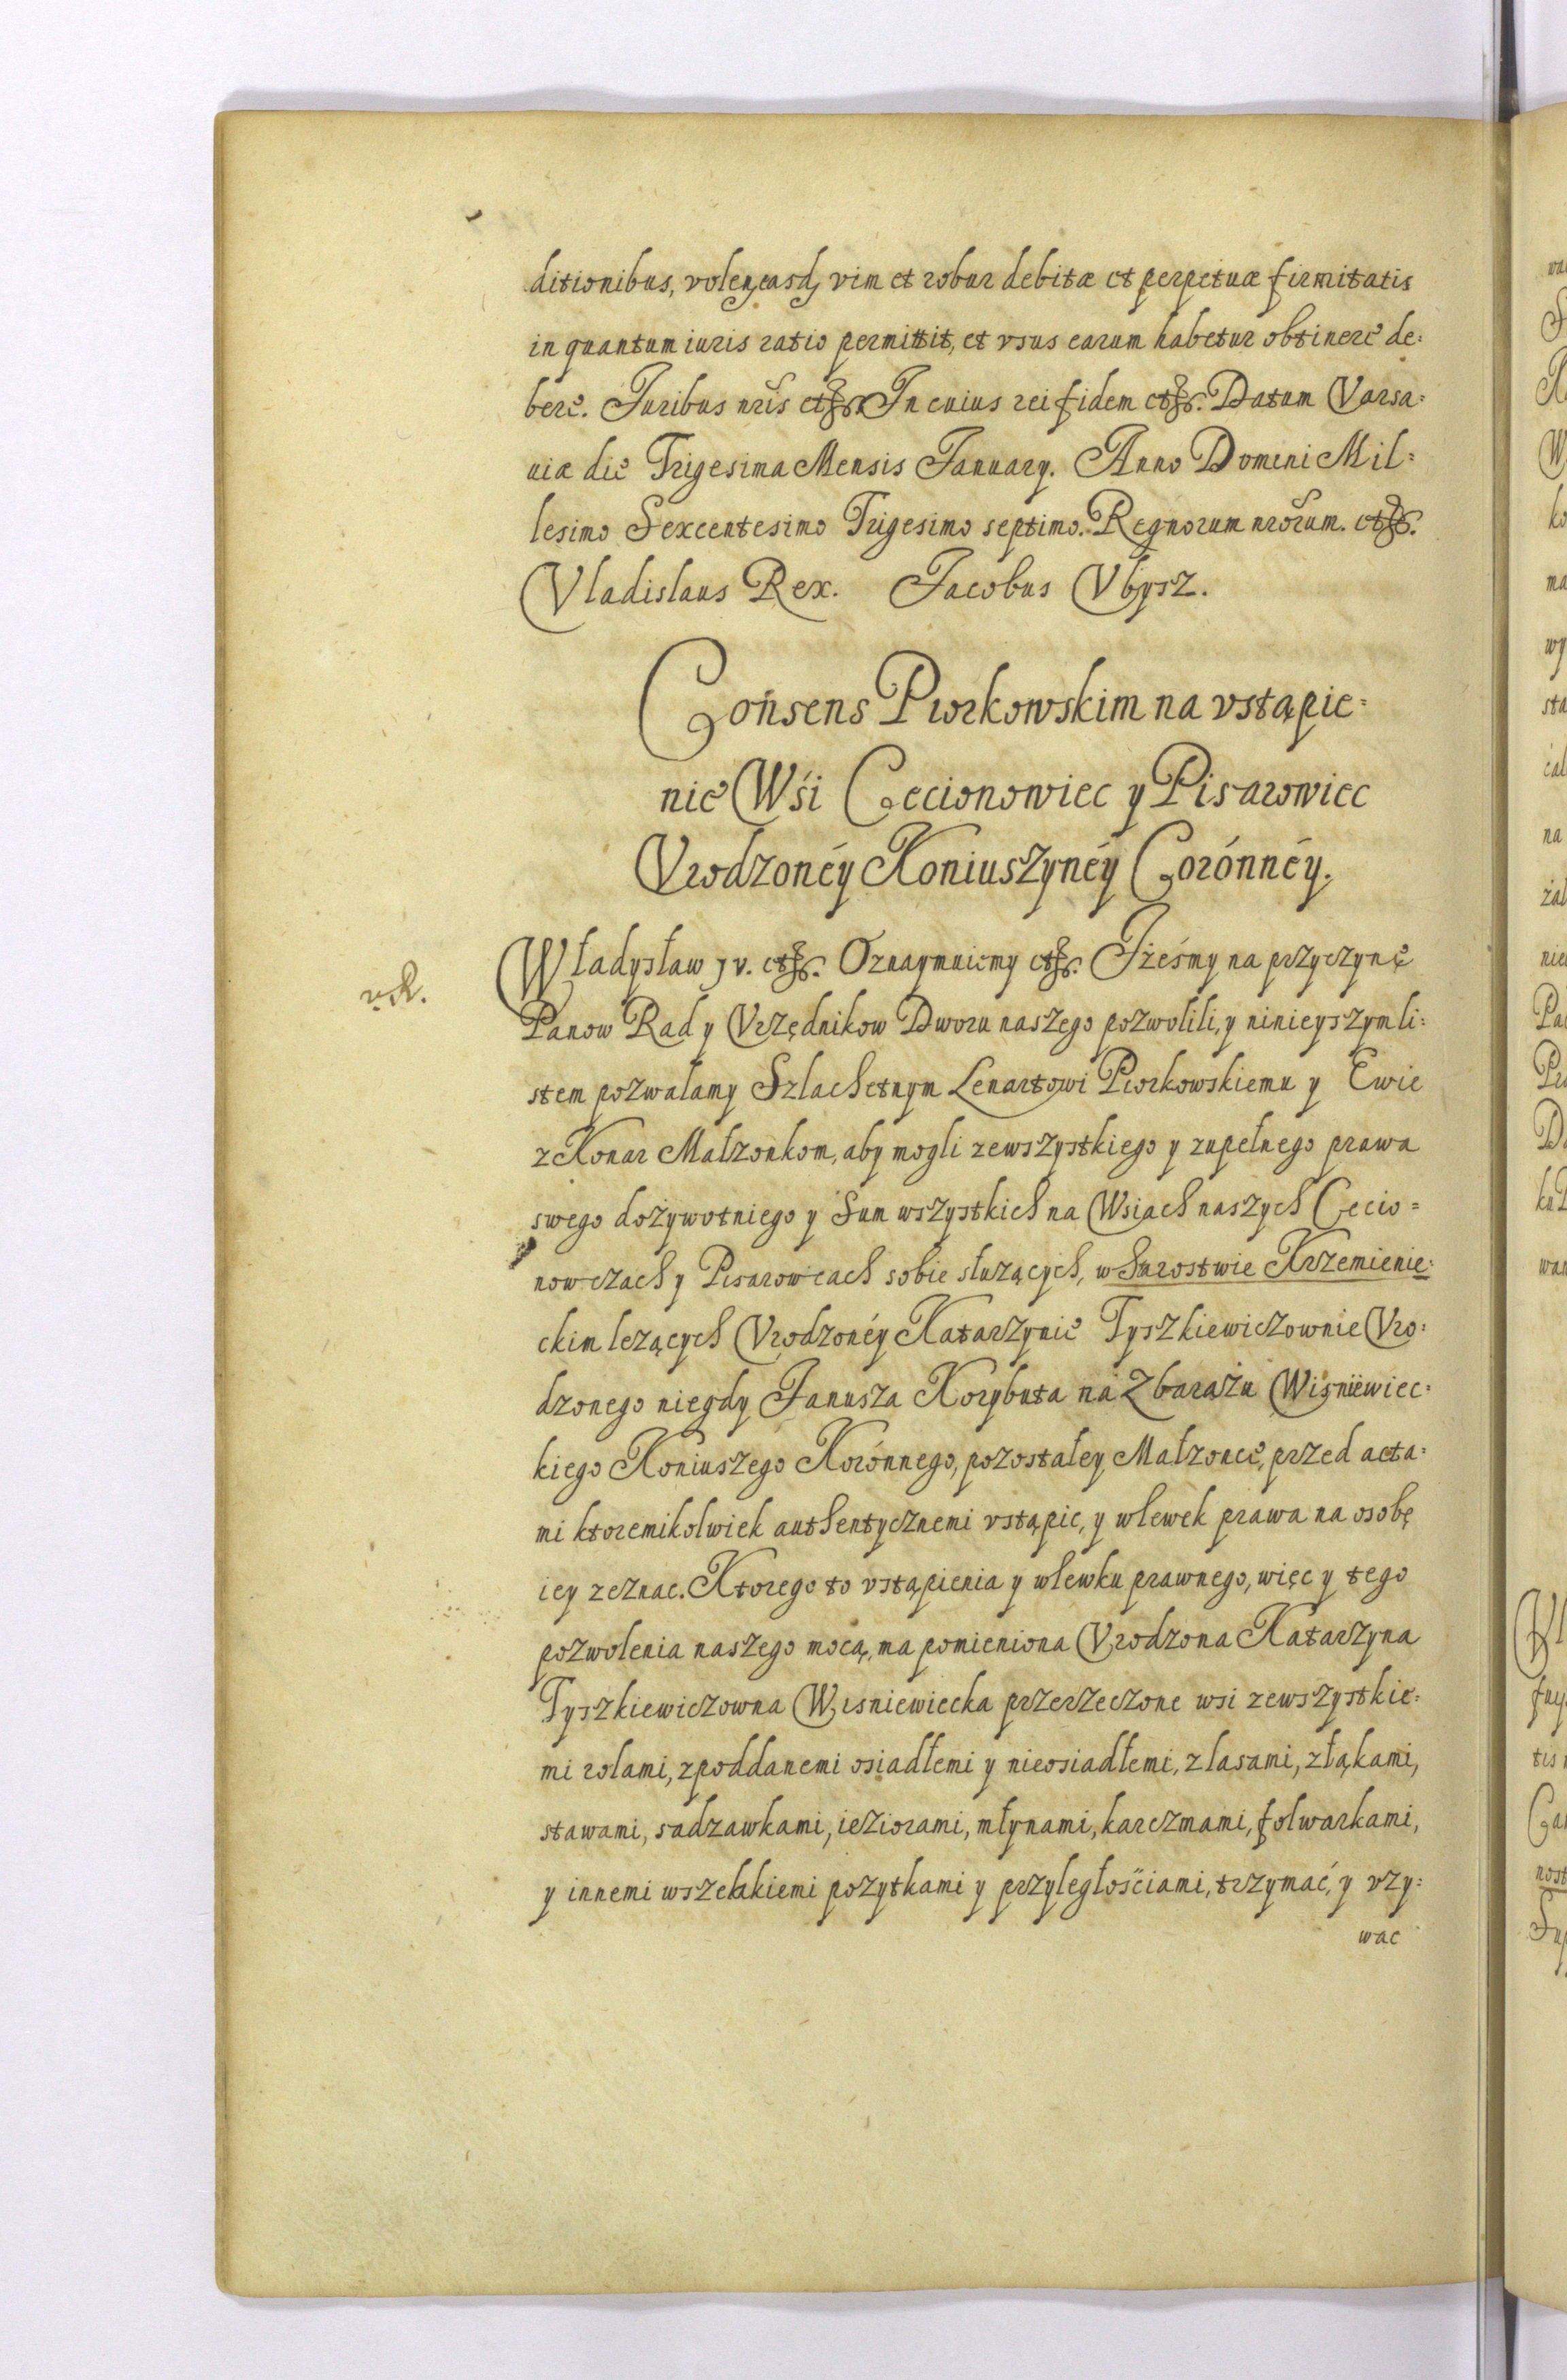 ditionibus, volen, easd, vim et robur debitæ et perpetuæ firmitatis
in quantum iuris ratio permittit, et vsus earum habetur obtinere de=
bere. Juribus nris etc. In cuius rei fidem etc. Datum Varsa=
uiæ die Trigesima Mensis January. Anno Domini Mil=
lesimo Sexcentesimo Trigesimo septimo. Regnorum nrorum. etc.
Vladislaus Rex. Jacobus Vbysz.
Consens Piorkowskim na vstąpie=
nie Wśi Cecionowiec y Pisarowiec
Vrodzonéy Koniuszynéy Corónnéy.
Władysław jv. etc. Oznaymuiemy etc. Jżeśmy na przyczynę
Panow Rad y Vrzędnikow Dworu naszego pozwolili, y ninieyszym li=
stem pozwalamy Szlachetnym Lenartowi Piorkowskiemu y Ewie
z Konar Małzonkom, aby mogli zewszystkiego y zupełnego prawa
swego dożywotniego y Sum wszystkich na Wsiach naszych Cecio=
nowczach y Pisarowcach sobie służących, w Starostwie Krzemienie=
ckim leżących Vrodzonéy Katarzynie Tyszkiewiczownie Vro=
dzonego niegdy Janusza Korybuta na Zbarażu Wisniewiec=
kiego Koniuszego Korónnego, pozostałey Małzonce, przed acta=
mi ktoremikolwiek authentycznemi vstąpic, y wlewek prawa na osobę
iey zeznac. Ktorego to vstąpienia y wlewku prawnego, więc y tego
pozwolenia naszego mocą, ma pomieniona Vrodzona Katarzyna
Tyszkiewiczowna Wisniewiecka przerzeczone wsi zewszystkie=
mi rolami, zpoddanemi osiadłemi y nieosiadłemi, z lasami, z łąkami,
stawami, sadzawkami, ieziorami, młynami, karczmami, folwarkami,
y innemi wszelakiemi pozytkami y przyległościami, trzymać, y vzy=
wac